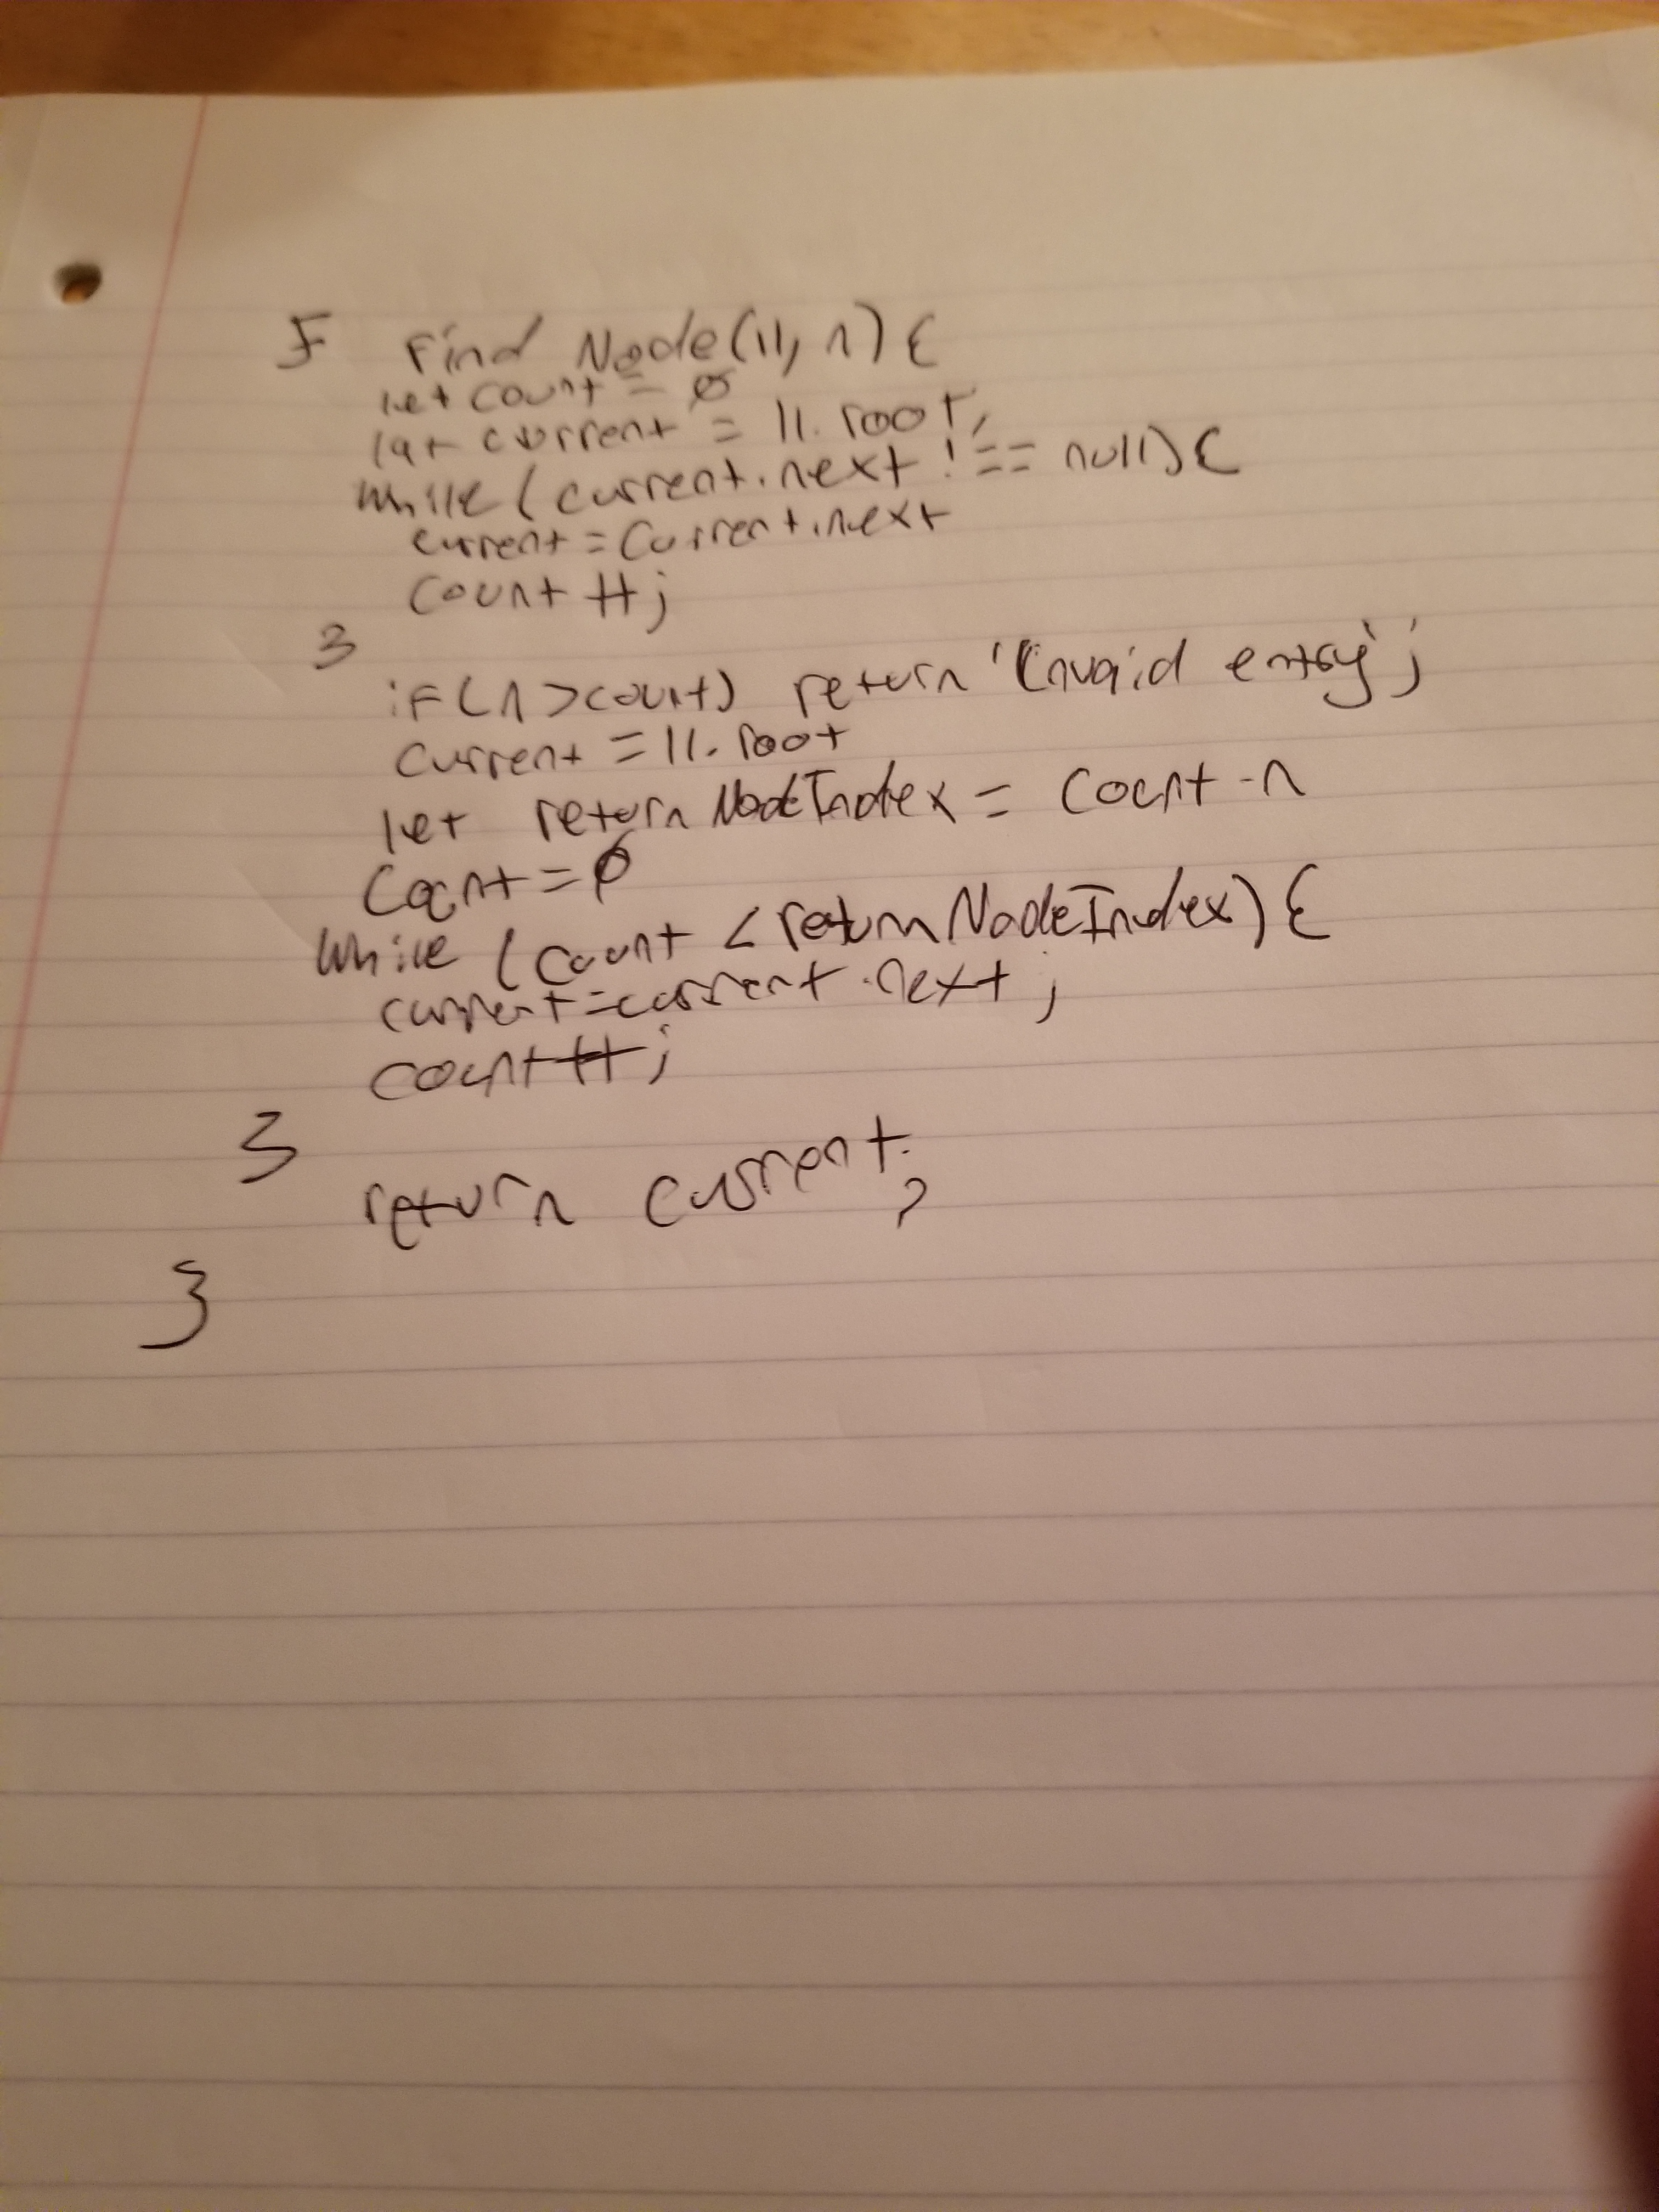 F Find Node(ll, n) {
let count = 0
let current = ll.root;
while (current.next !== null) {
current = current.next
count ++;
}
if (n > count) return 'Invaid entry';
current = ll.root
let returnNodeIndex = count - n
Count = 0
while (count < returnNodeIndex) {
current = current.next;
count ++;
}
return current;
}